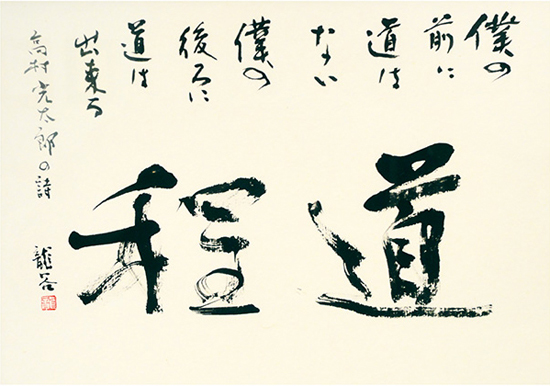 僕の
前に
道は
ない
僕の
後ろに
道は
出来る
道程
高村光太郎の詩
龍谷